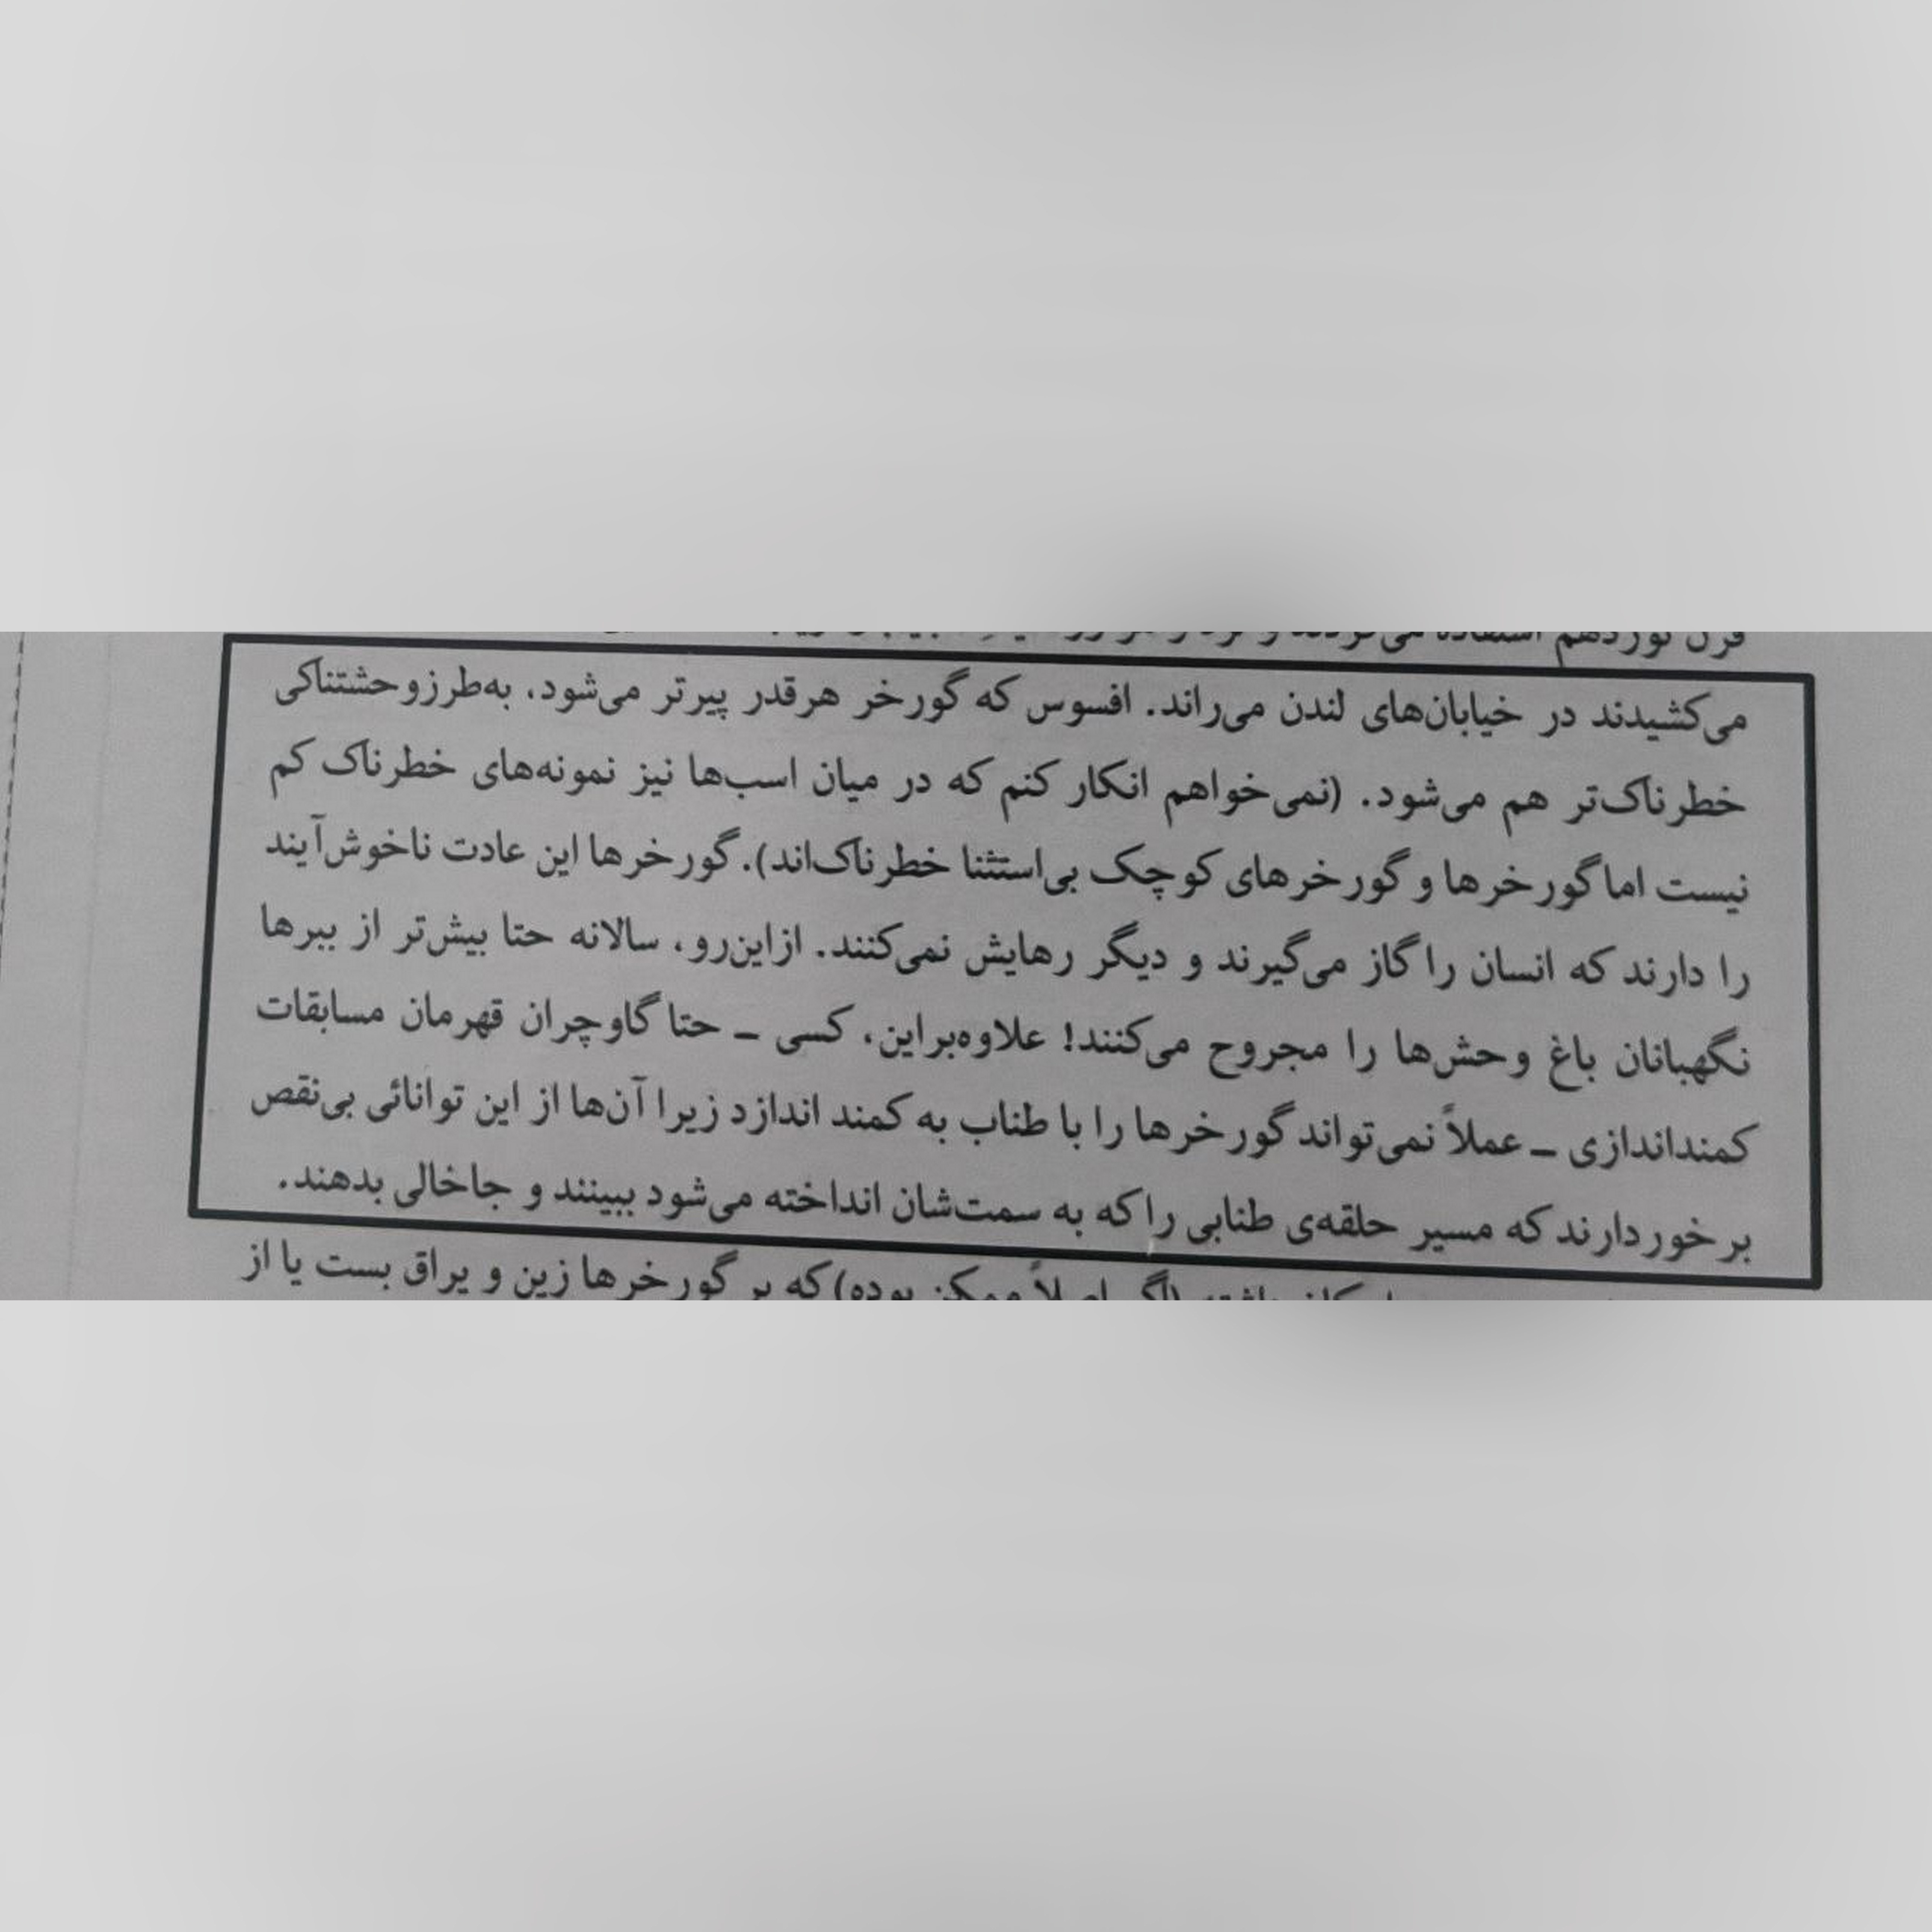 قرن نوزدهم استفاده می‌کردند و
می‌کشیدند در خیابان‌های لندن می‌راند. افسوس که گورخر هرقدر پیرتر می‌شود، به‌طرز وحشتناکی
خطرناک‌تر هم می‌شود. (نمی‌خواهم انکار کنم که در میان اسب‌ها نیز نمونه‌های خطرناک کم
نیست اما گورخرها و گورخرهای کوچک بی‌استثنا خطرناک‌اند). گورخرها این عادت ناخوش‌آیند
را دارند که انسان را گاز می‌گیرند و دیگر رهایش نمی‌کنند. ازاین‌رو، سالانه حتا بیش‌تر از ببرها
نگهبانان باغ وحش‌ها را مجروح می‌کنند! علاوه‌براین، کسی ــ حتا گاوچران قهرمان مسابقات
کمنداندازی ــ عملاً نمی‌تواند گورخرها را با طناب به کمند اندازد زیرا آن‌ها از این توانائی بی‌نقص
برخوردارند که مسیر حلقه‌ی طنابی را که به سمت‌شان انداخته می‌شود ببینند و جاخالی بدهند.
(اگر اصلاً ممکن بوده) که بر گورخرها زین و یراق بست یا از